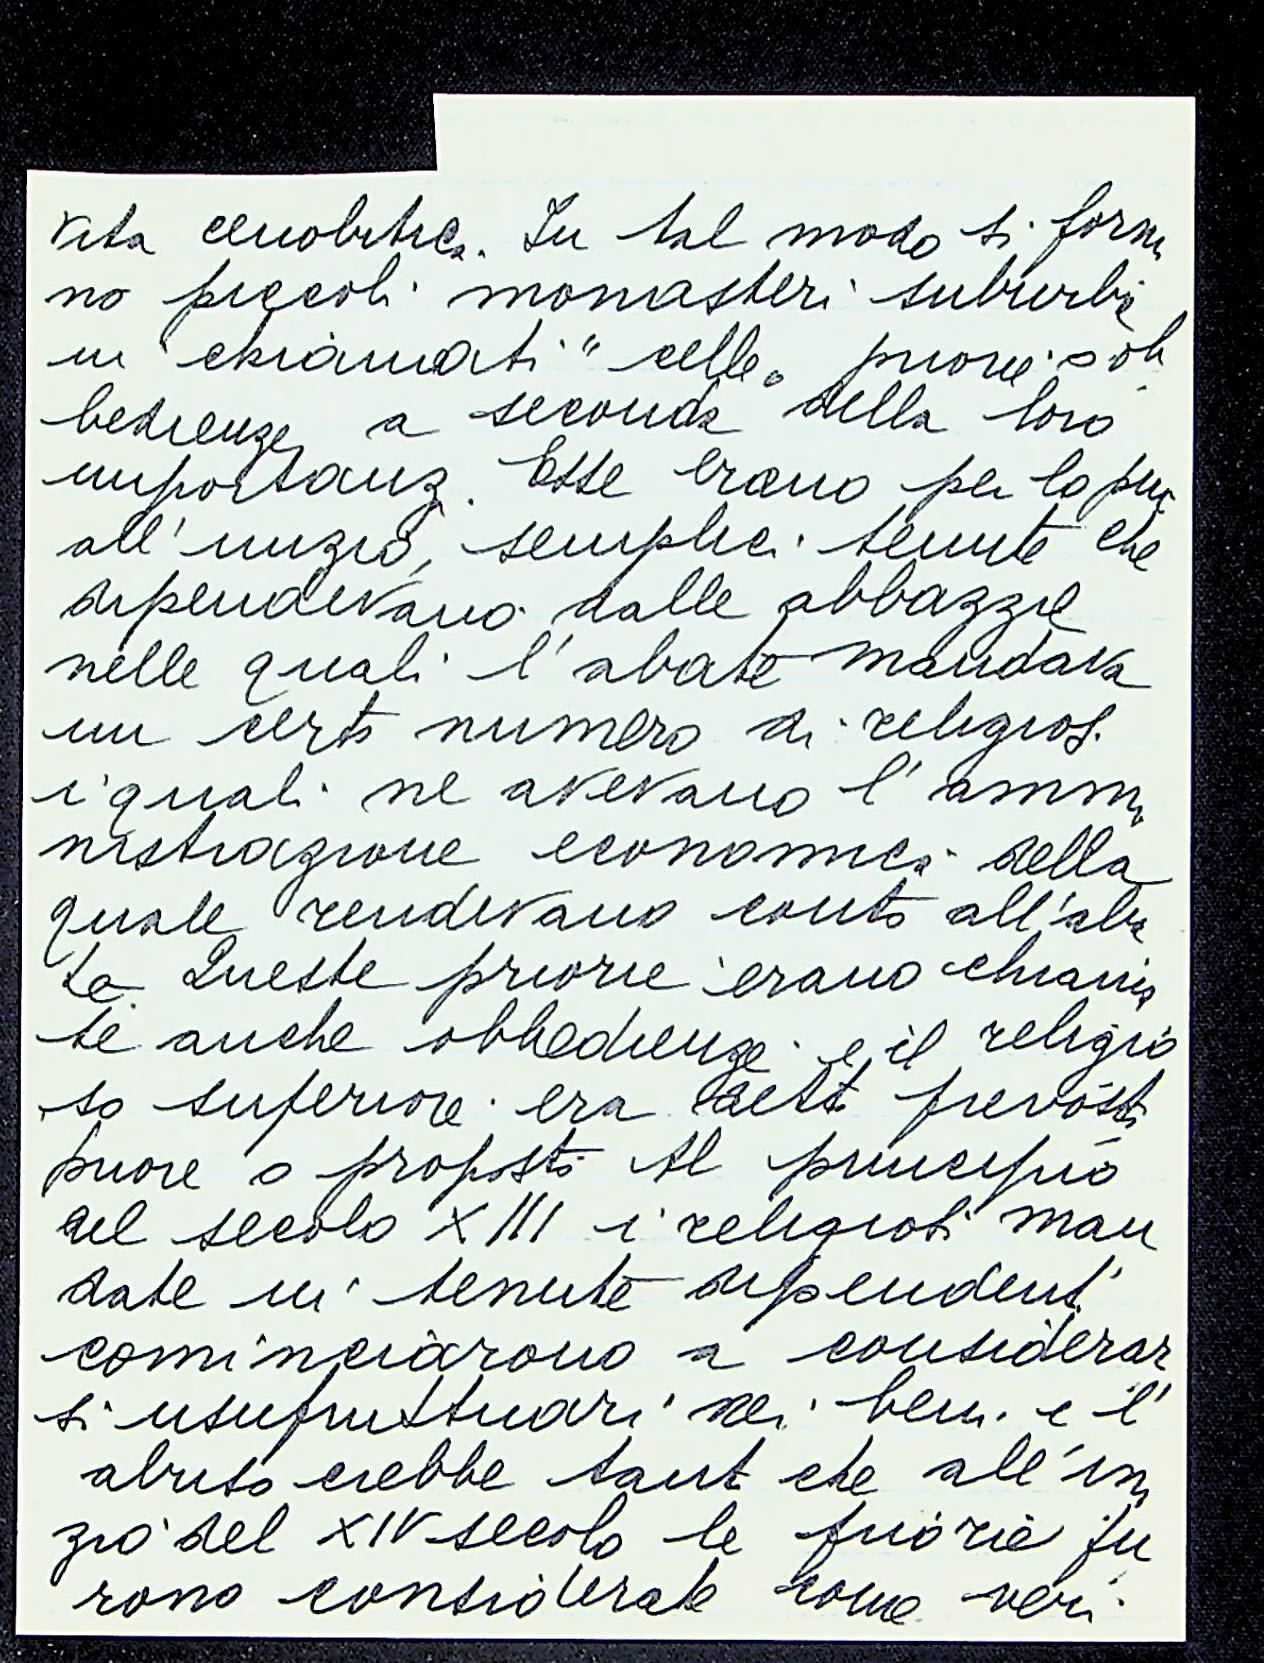 vita cenobitica. In tal modo si forma
no piccoli monasteri suburbi
ni chiamati "celle" priorie o ob
bedienze a seconda della loro
importanza. Esse erano per lo più
all'inizio, semplici tenute che
dipendevano dalle abbazzie
nelle quali l'abate mandava
un certo numero di religiosi
i quali ne avevano l'ammi
nistrazione economica della
quale rendevano conto all'aba
te. Queste priorie erano chiama
te anche obbedienze e il religio
so superiore era detto prevosto
priore o proposto Al principio
del secolo XIII i religiosi man
date in tenute dipendenti
cominciarono a considerar
si usufruttuari dei beni e l'
abuso crebbe tanto che all'ini
zio del XIV secolo le priorie fu
rono considerate come veri